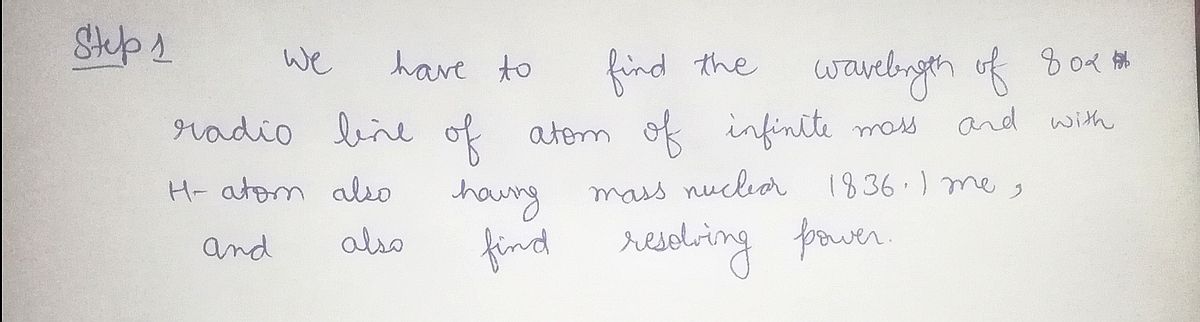 Step 1 We have to find the wavelength of 80α
radio line of atom of infinite mass and with
H- atom also having mass nuclear 1836.1 me,
and also find resolving power.